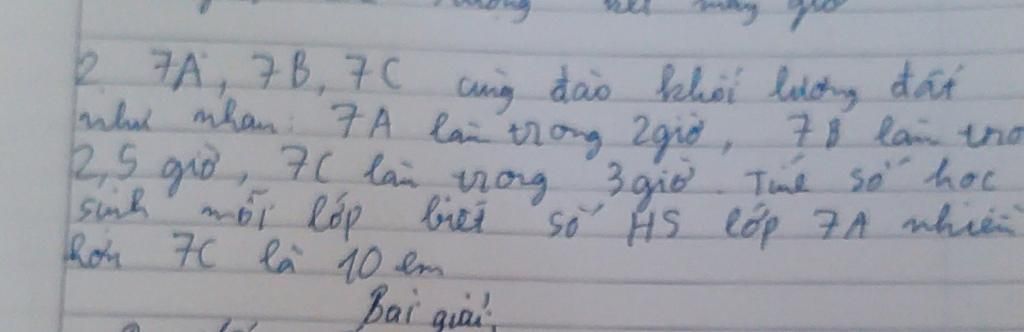 hết mấy giờ
2. 7A, 7B, 7C cùng đào khối lượng đất
như nhau: 7A làm trong 2 giờ, 7B làm tro
2,5 giờ, 7C làm trong 3 giờ. Tính số học
sinh mỗi lớp biết số HS lớp 7A nhiều
hơn 7C là 10 em
Bài giải: